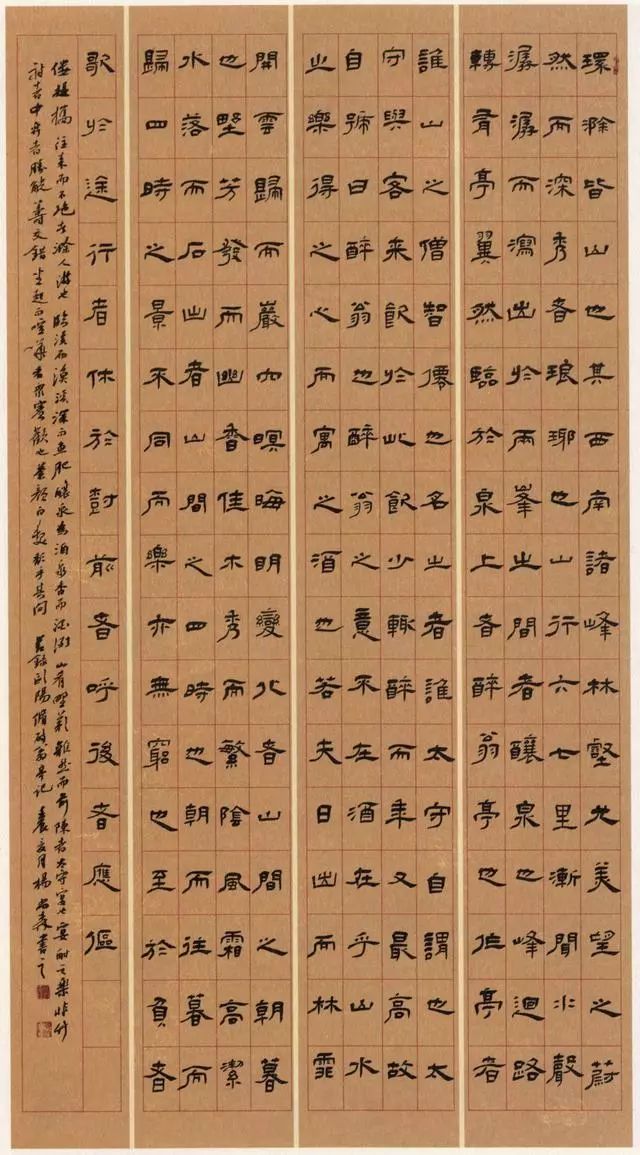 環滁皆山也其西南諸峰林壑尤美望之蔚
然而深秀者琅琊也山行六七里漸聞水聲
潺潺而瀉出於兩峯之間者釀泉也峰迴路
轉有亭翼然臨於泉上者醉翁亭也作亭者
誰山之僧智僊也名之者誰太守自謂也太
守與客來飲於此飲少輒醉而年又最高故
自號曰醉翁也醉翁之意不在酒在乎山水
之樂得之心而寓之酒也若夫日出而林霏
開雲歸而巖穴暝晦明變化者山間之朝暮
也野芳發而幽香佳木秀而繁陰風霜高潔
水落而石出者山間之四時也朝而往暮而
歸四時之景不同而樂亦無窮也至於負者
歌於途行者休於樹前者呼後者應傴
僂提攜往來而不絕者滁人游也臨溪而漁溪深而魚肥釀泉為酒泉香而酒洌山肴野蔌雜然而前陳者太守宴也宴酣之樂非竹
射者中弈者勝觥籌交錯坐起而喧嘩者眾賓歡也蒼顏白髮頹乎其間 節錄歐陽脩醉翁亭記 月楊森書之